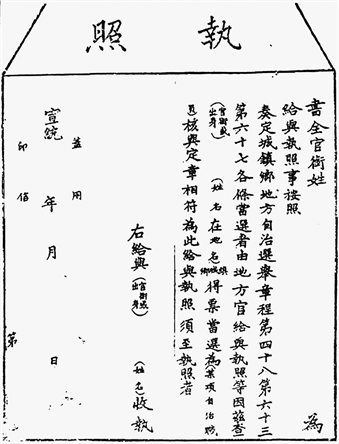 執照
書全官銜姓
為
給與執照事按照
奏定城鎮鄉地方自治選舉章程第四十八第六十三
第六十七各條當選者由地方官給與執照等因茲查
(官銜或出身) (姓名)在地名城鎮鄉得票當選為(某項自治職)
員核與定章相符為此給與執照須至執照者
右給與(官銜或出身) (姓名)收執
蓋用
宣統 年 月 日
印
第